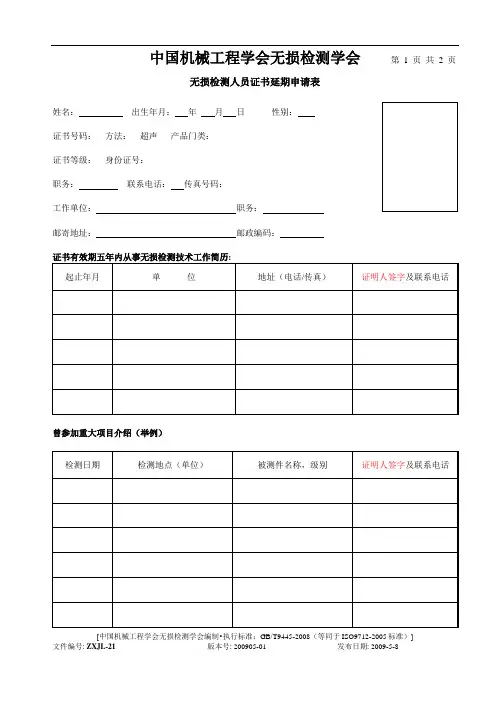 中国机械工程学会无损检测学会 第 1 页 共 2 页
无损检测人员证书延期申请表
姓名： 出生年月： 年 月 日 性别：
证书号码： 方法： 超声 产品门类：
证书等级： 身份证号：
职务： 联系电话： 传真号码：
工作单位： 职务：
邮寄地址： 邮政编码：
证书有效期五年内从事无损检测技术工作简历：
起止年月 单 位 地址（电话/传真） 证明人签字及联系电话
曾参加重大项目介绍（举例）
检测日期 检测地点（单位） 被测件名称，级别 证明人签字及联系电话
[中国机械工程学会无损检测学会编制•执行标准：GB/T9445-2008（等同于 ISO9712-2005 标准）]
文件编号: ZXJL-21 版本号: 200905-01 发布日期: 2009-5-8